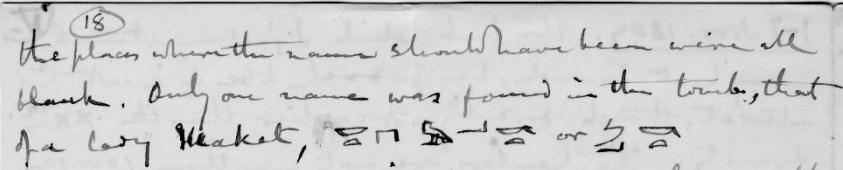 18
the places where the name should have been were all
blank. Only one name was found in the tomb, that
of a lady Maket, or